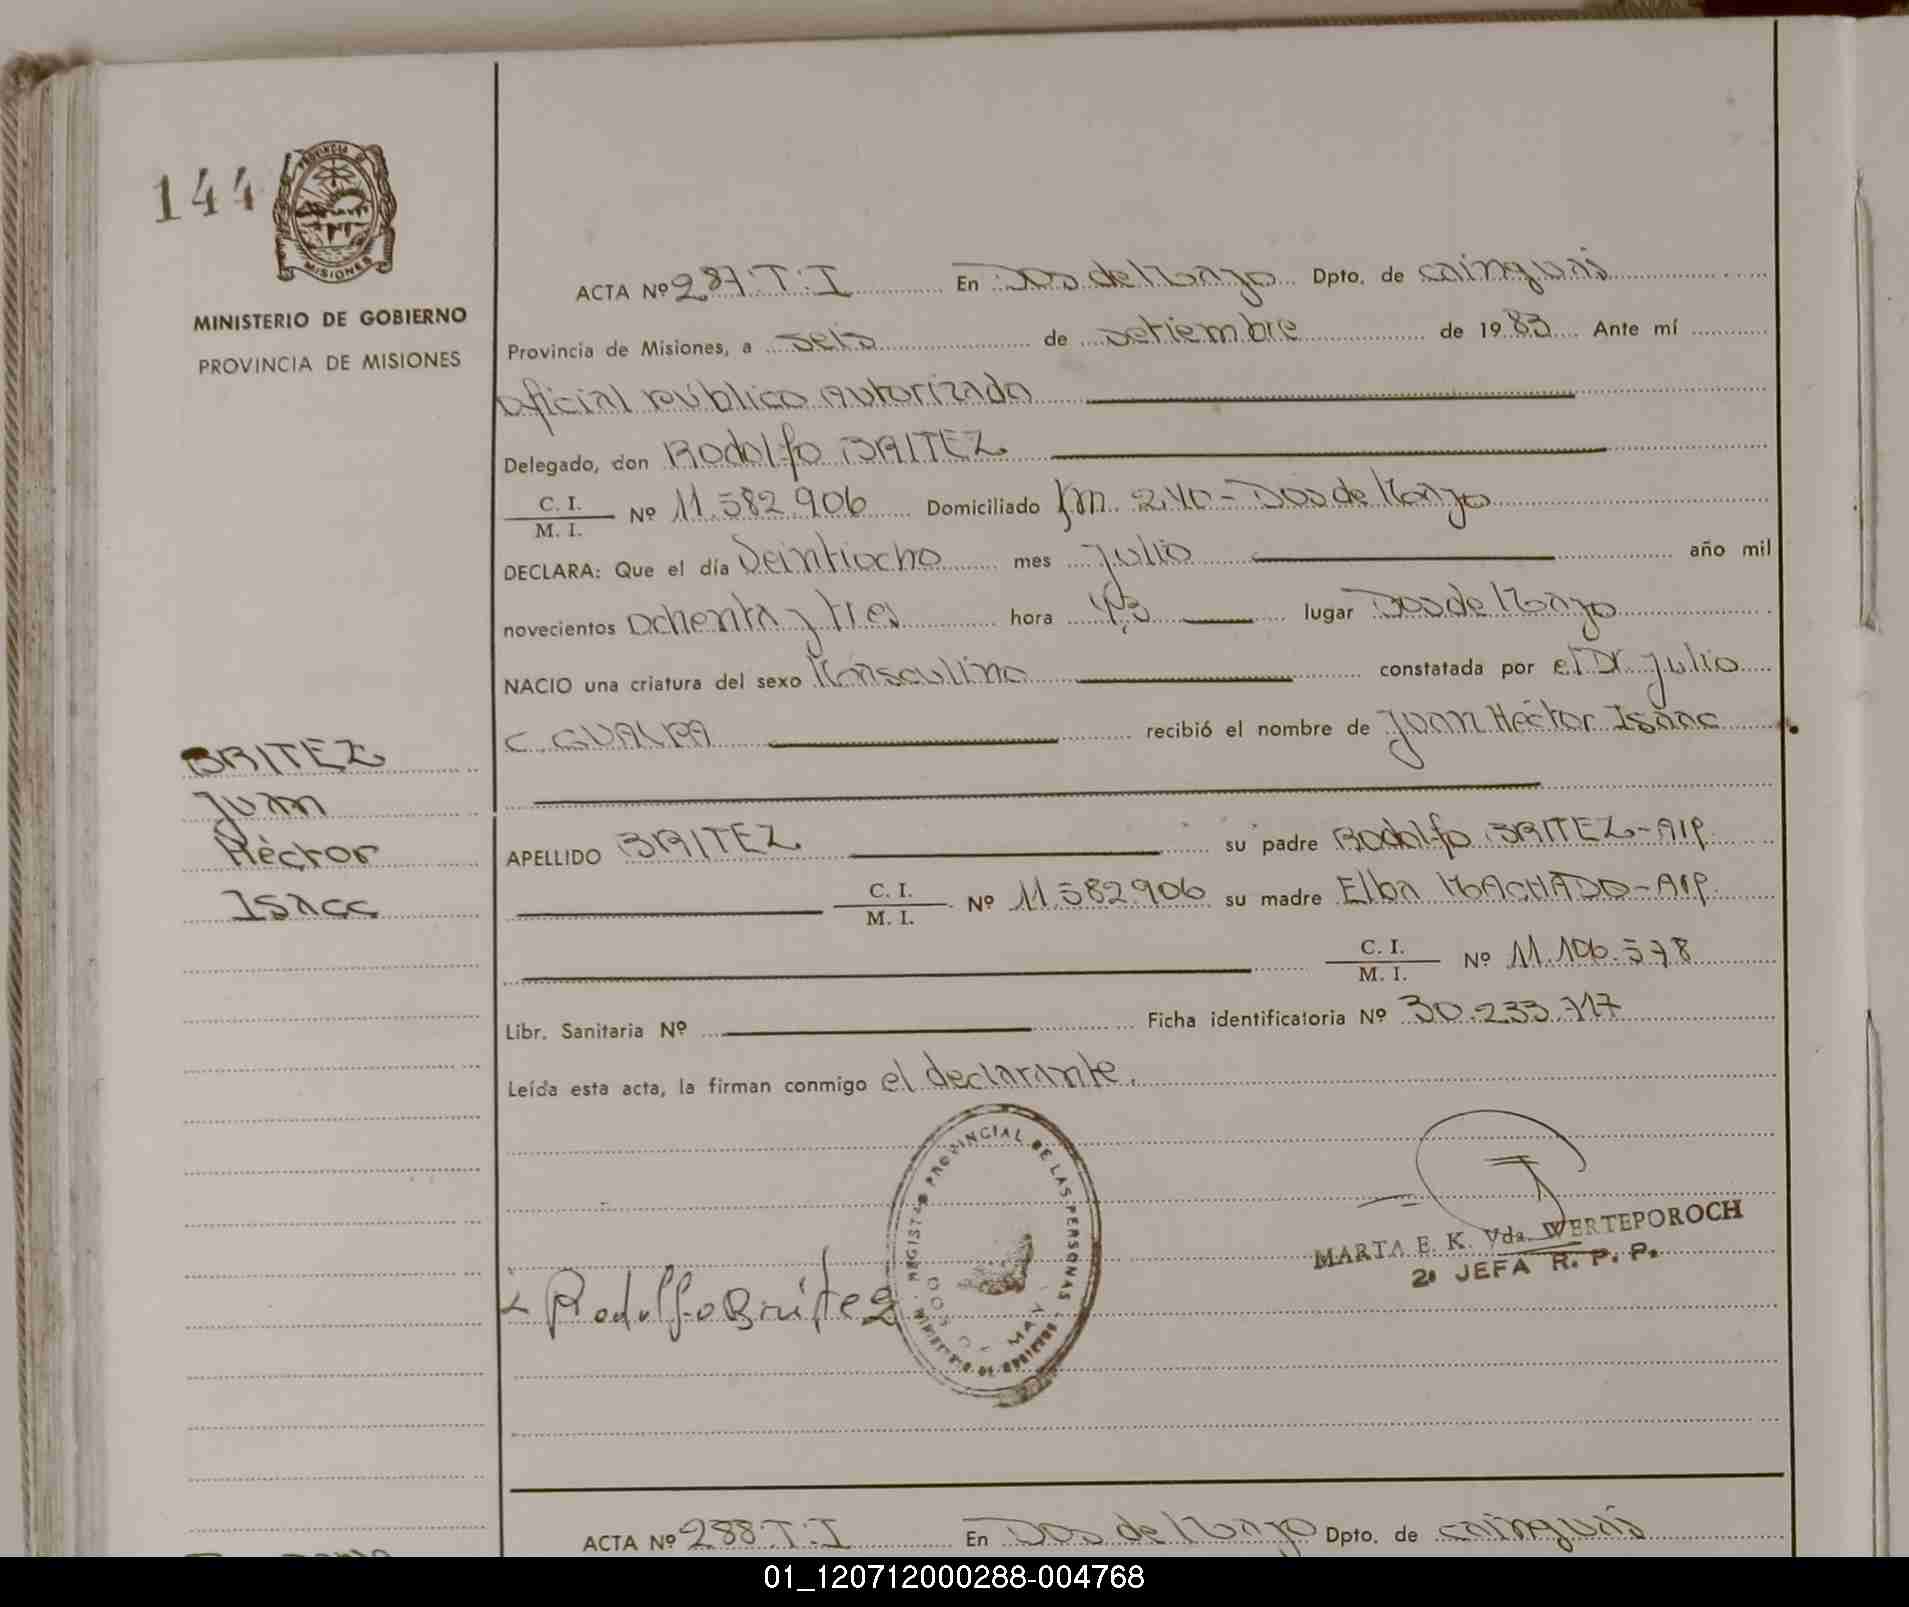 144
PROVINCIA DE
MISIONES
MINISTERIO DE GOBIERNO
PROVINCIA DE MISIONES
BRITEZ
Juan
Héctor
Isacc
ACTA Nº 287.T.I En Dos de Mayo Dpto. de Cainguás
Provincia de Misiones, a seis de setiembre de 1983 Ante mí
oficial público autorizado
Delegado, don Rodolfo BRITEZ
C. I. / M. I. Nº 11.582.906 Domiciliado Km. 240 - Dos de Mayo
DECLARA: Que el día Veintiocho mes Julio año mil
novecientos Ochenta y tres hora lugar Dos de Mayo
NACIO una criatura del sexo Masculino constatada por el Dr. Julio
C. GUALPA recibió el nombre de Juan Héctor Isaac
APELLIDO BRITEZ su padre Rodolfo BRITEZ - Arg.
C. I. / M. I. Nº 11.582.906 su madre Elba MACHADO - Arg.
C. I. / M. I. Nº 11.106.578
Libr. Sanitaria Nº Ficha identificatoria Nº 30.233.717
Leída esta acta, la firman conmigo el declarante.
REGISTRO PROVINCIAL DE LAS PERSONAS
MINISTERIO DE GOBIERNO
DOS DE MAYO
MARTA E. K. Vda. WERTEPOROCH
2ª JEFA R. P. P.
Rodolfo Britez
ACTA Nº 288.T.I En Dos de Mayo Dpto. de Cainguás
01_120712000288-004768